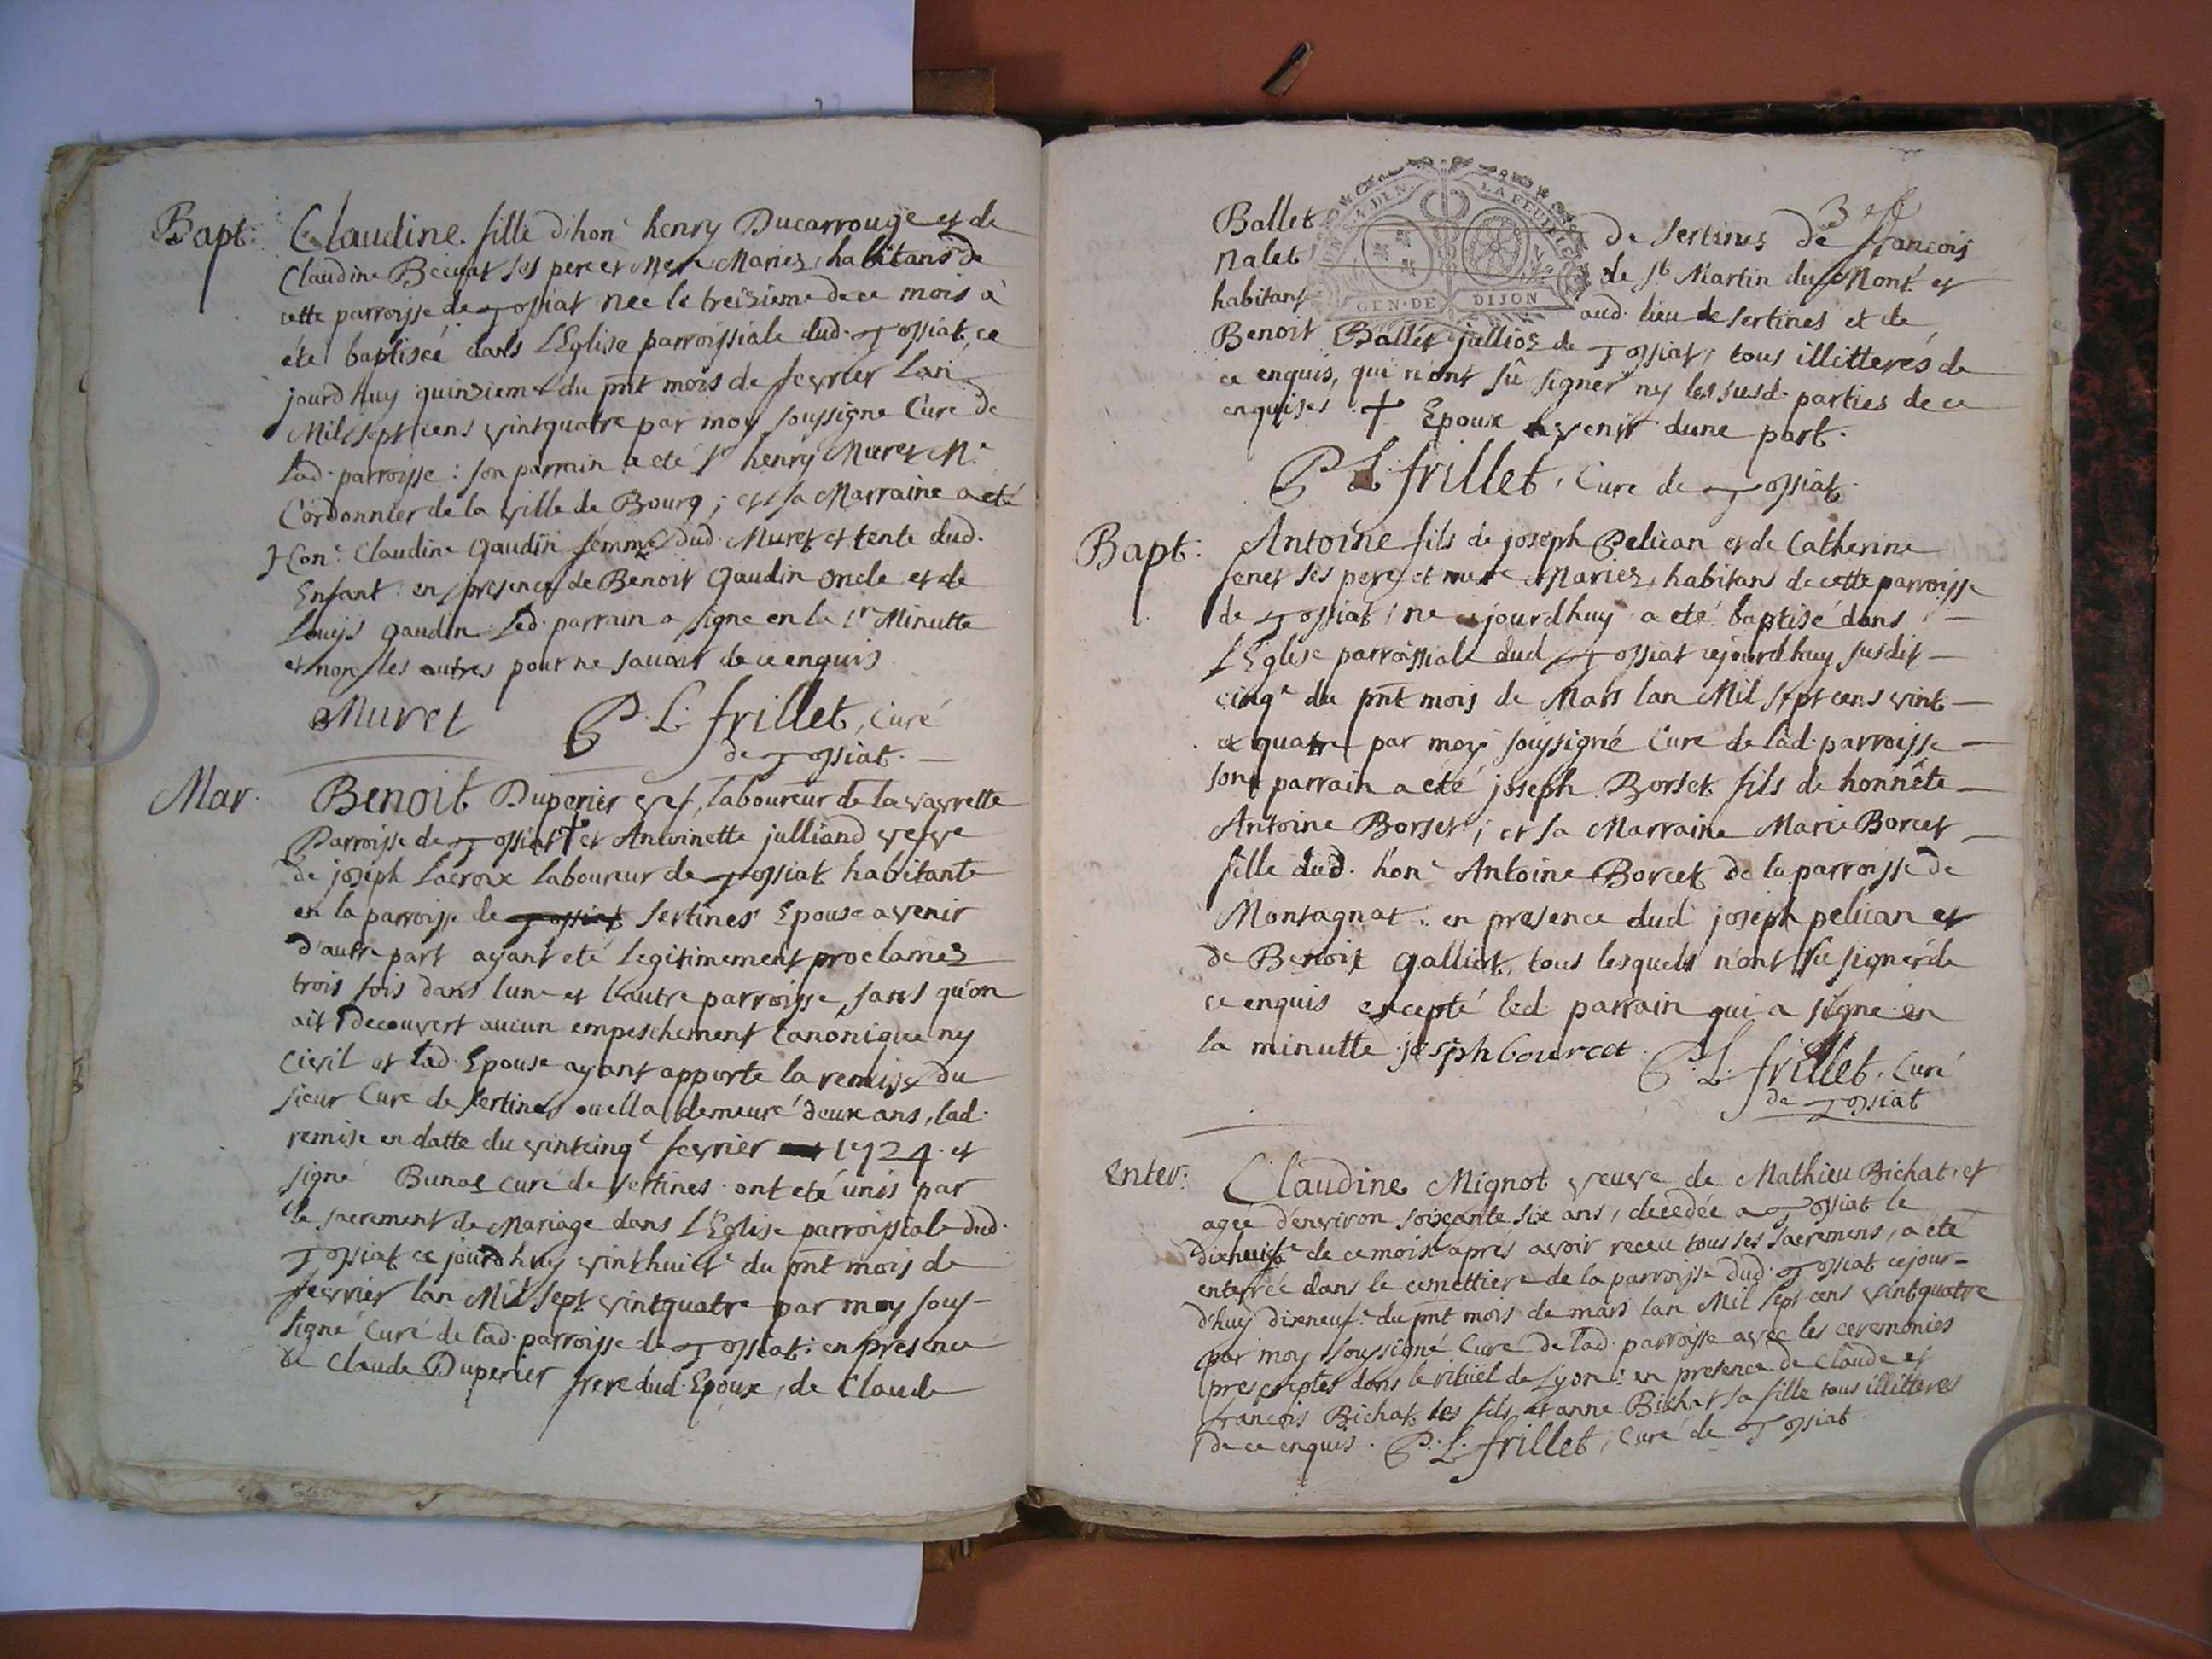 Bapt: Claudine fille d'hon.e henry Ducarrouge et de
Claudine Becuat ses pere et Mere Mariez, habitans de
cette parroisse de Tossiat née le treisieme de ce mois à
été baptisée dans L'Eglise parroissiale dud. Tossiat, ce
jourdhuy quinzieme du pnt mois de fevrier Lan
Mil sept cens vintquatre par moy soussigne Curé de
lad. parroisse: son parrain a eté Sr henry Muret M.e
Cordonnier de la ville de Bourg; et sa Marraine a eté
Hon.e Claudine Gaudin femme dud. Muret et tente dud.
Enfant: en presence de Benoit Gaudin oncle et de
Louys Gaudin. Led. parrain a signe en la 1r Minutte
et non les autres pour ne savoir de ce enquis
Muret P. L. frillet, Curé
de Tossiat.
Mar. Benoit Duperier vef, laboureur de la vavrette
Parroisse de Tossiat † et Antoinette julliand vefve
de joseph Lacroix laboureur de Tossiat habitante
en la parroisse de Tossiat Sertines Epouse avenir
d'autre part ayant eté legitimement proclamez
trois fois dans lune et l'autre parroisse, sans qu'on
ait decouvert aucun empeschement Canonique ny
Civil et lad. Epouse ayant apporte la remise du
sieur Curé de Sertines ou ella demeuré deux ans, lad.
remise en datte du vintcinq.e fevrier 1724. et
signé Bunos curé de Sertines. ont eté unis par
le sacrement de Mariage dans L'Eglise parroissiale dud.
Tossiat ce jourdhuy vinthuict.e du pnt mois de
fevrier lan Mil sept vintquatre par moy sous-
signé Curé de lad. parroisse de Tossiat: en presence
de Claude Duperier frere dud. Epoux, de Claude
GEN. DE DIJON
LA FEUILLE
3 eff
Ballet de Sertines de françois
Nalet de St Martin du Mont et
habitant aud. lieu de Sertines et de
Benoit Ballet jullios de Tossiat, tous illitterés de
ce enquis, qui n'ont sû signer ny les susd. parties de ce
enquises. † Epoux avenir dune part.
P. L. frillet, Curé de Tossiat.
Bapt: Antoine fils de joseph Pelican et de Catherine
fenet ses pere et mere Mariez, habitans de cette parroisse
de Tossiat, né cejourdhuy a eté baptisé dans
L'Eglise parroissiale dud Tossiat cejourdhuy susdit
cinq.e du pnt mois de Mars lan Mil sept cens vint
et quatre par moy soussigné Curé de lad. parroisse
son parrain a été joseph Borset fils de honnête
Antoine Borset; et sa Marraine Marie Borcet
fille dud. hon.e Antoine Borcet de la parroisse de
Montagnat. en presence dud joseph pelican et
de Benoit Galliot, tous lesquels n'ont su signer de
ce enquis excepté led parrain qui a signe en
la minutte. joseph bourcet. P. L. frillet, Curé
de Tossiat
Enter: Claudine Mignot veuve de Mathieu Bichat, et
agée d'environ soixante six ans, decedée a Tossiat le
dixhuict.e de ce mois aprés avoir receu tous ses sacremens, a eté
enterrée dans le cemettiere de la parroisse dud. Tossiat cejour-
d'huy dixneuf.e du pnt mois de mars lan Mil sept cens vintquatre
par moy soussigné Curé de lad. parroisse avec les ceremonies
prescriptes dans le rituël de Lyon: en presence de Claude et
francois Bichat ses fils et anne Bichat sa fille tous illitterés
de ce enquis. P. L. frillet, Curé de Tossiat